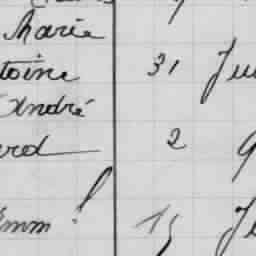 Marie
toine 31 Jui
André
erd 2
mm ! 15